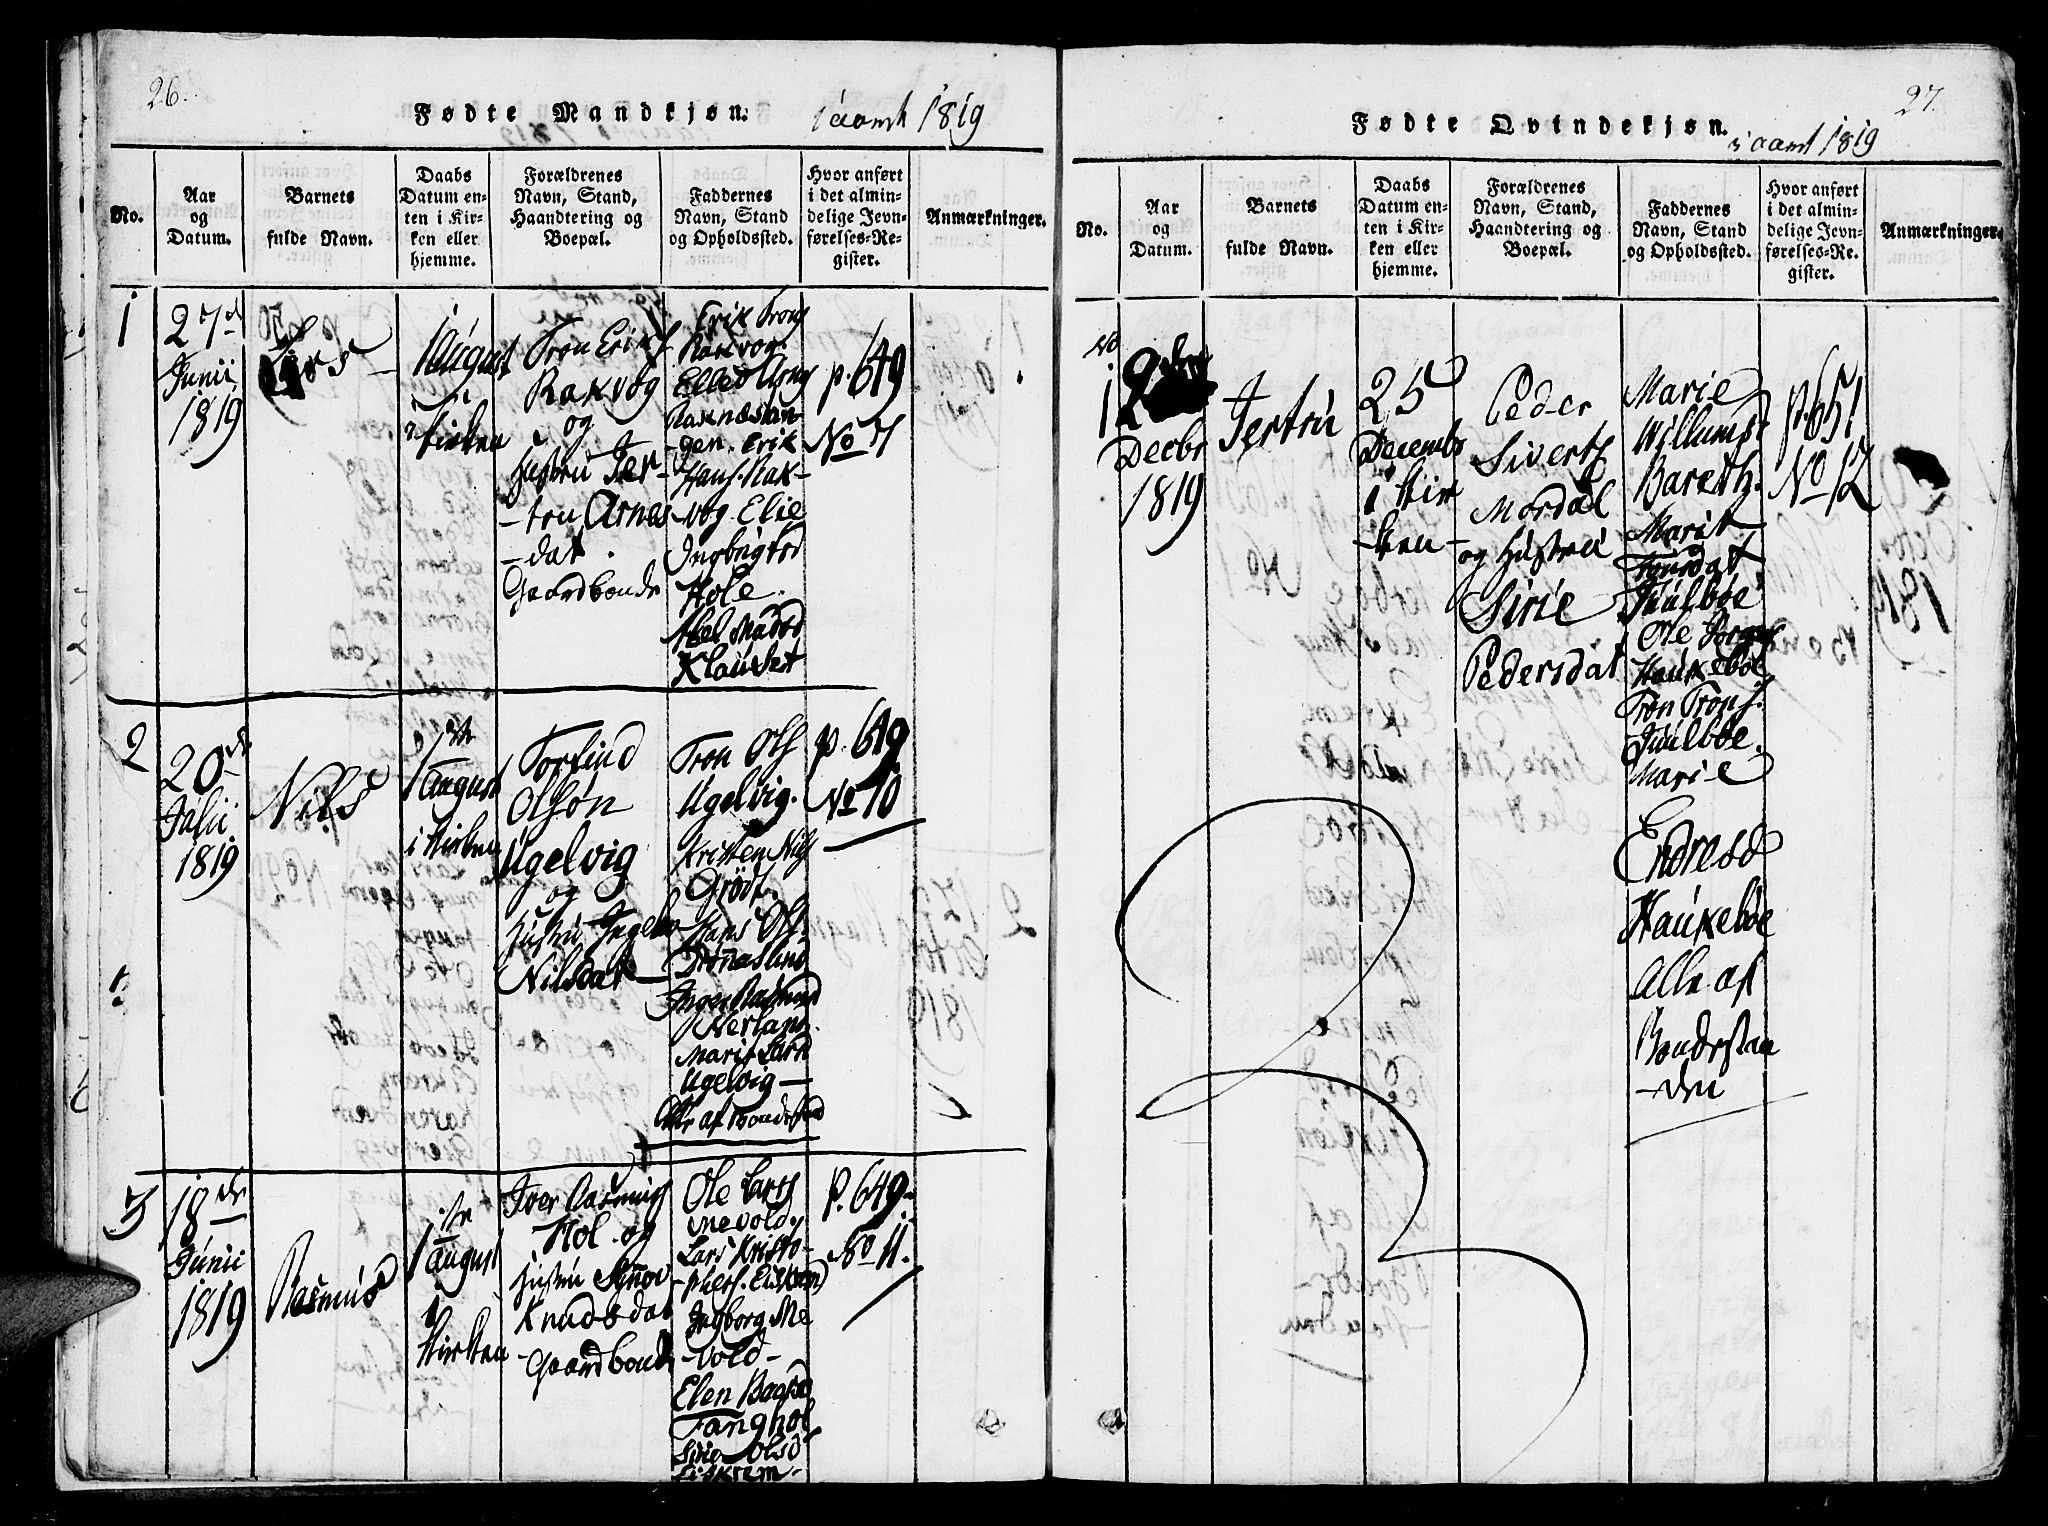 26.
Fødte Mandkjøn.
i aaret 1819
No.
Aar
og
Datum.
Barnets
fulde Navn.
Daabs
Datum en-
ten i Kir-
ken eller
hjemme.
Forældrenes
Navn, Stand,
Haandtering og
Boepæl.
Faddernes
Navn, Stand
og Opholdssted.
Hvor anført
i det almin-
delige Jevn-
førelses-Re-
gister.
Anmærkninger.
1
27de
Junii
1819
Lars
1 August
i
Kirken
Tron Eriks
Rakvog
og
Hustru Jer-
-tru Arnes
-dat.
Gaardbonde
Erik Trons
Rakvog
Elled Arns
Raknæstan-
gen. Erik
Hans. Rak-
-vog. Elie
Ingbrigtsd
Hole.
Abel Madsd
Klauset
p. 649
No 7
2
20de
Julii
1819
Nils
1ste
August
i Kirken
Torlind
Olsøn
Ugelvig
og
Hustru Ingebo
Nilsdat
Tron Ols
Ugelvig.
Kristen Nils
Grödt.
Hans Ols.
Inger Rasmusd
Nerland.
Marit Larsd
Ugelvig
Alle af Bondestand
p. 649
No 10
3
18de
Junii
1819
Rasmus
1ste
August
i
Kirken
Iver Rasmus
Hol og
Hustru Synnov
Knudsdat
Gaardbonde
Ole Lars
Mevold.
Lars Kristo-
-phers. Eiskrem
Ingborg Me
-vold-
Elen Bags
Tanghol
Sirie Olsd
Eiskrem-
p. 649-
No 11.
27.
Fødte Qvindekjøn.
i aaret 1819
No.
Aar
og
Datum.
Barnets
fulde Navn.
Daabs
Datum en-
ten i Kir-
ken eller
hjemme.
Forældrenes
Navn, Stand,
Haandtering og
Boepæl.
Faddernes
Navn, Stand
og Opholdssted.
Hvor anført
i det almin-
delige Jevn-
førelses-Re-
gister.
Anmærkninger.
No
1
Decbr
1819
Jertru
25
Decembr
i Kir
-ken-
Peder
Siverts
Mordal
og Hustru
Sirie
Pedersdat
Marie
Willums
Bareth.
Marit
Tronsdat
Juulbøe
Ole Jorgs
Haukebøe
Tron Trons.
Juulbøe.
Marie
Endresd
Haukebøe
Alle af
Bondestan
-den
p. 651
No 12